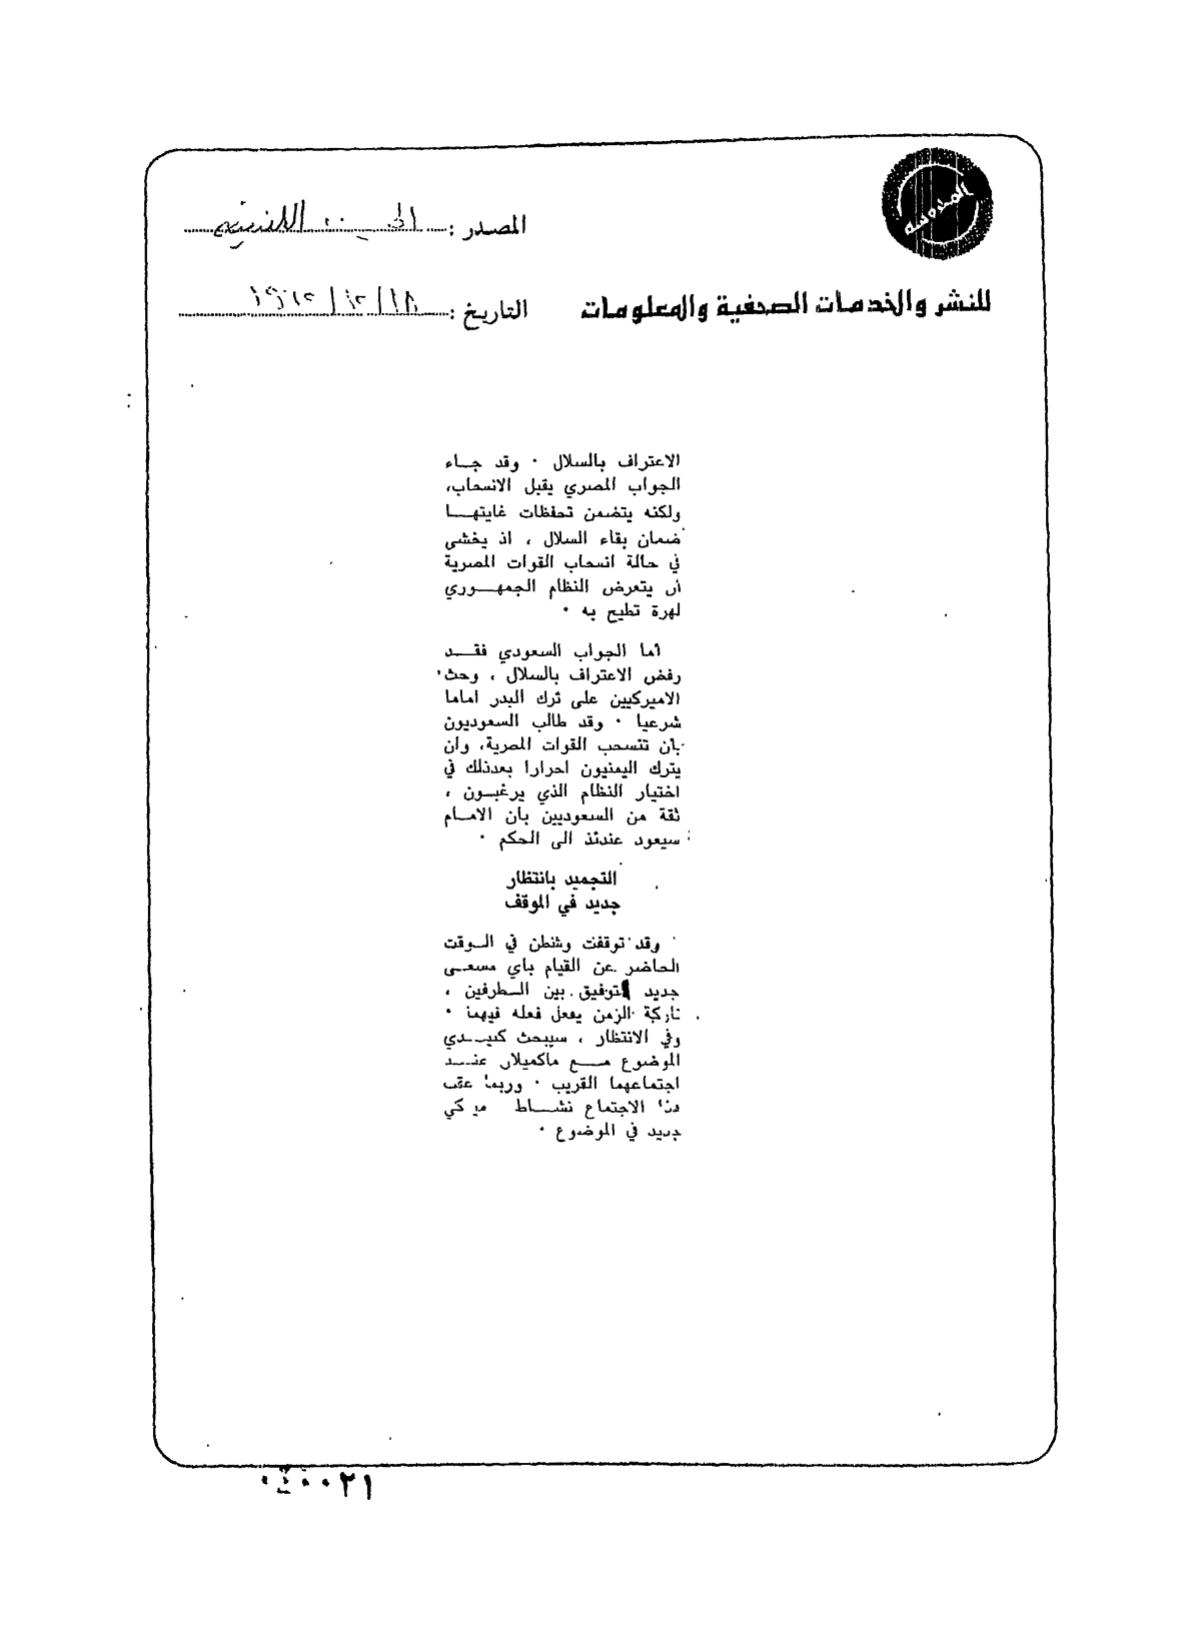 المصدر : الحيـــاة اللندنية
للنشر والخدمات الصحفية والمعلومات
التاريخ : ١٨/١٢/١٩٦٢
الاعتراف بالسلال . وقد جــاء
الجواب المصري يقبل الانسحاب،
ولكنه يتضمن تحفظات غايتهــا
ضمان بقاء السلال ، اذ يخشى
في حالة انسحاب القوات المصرية
ان يتعرض النظام الجمهــوري
لهزة تطيح به .
اما الجواب السعودي فقــد
رفض الاعتراف بالسلال ، وحث
الاميركيين على ترك البدر اماما
شرعيا . وقد طالب السعوديون
بان تنسحب القوات المصرية، وان
يترك اليمنيون احرارا بعدذلك في
اختيار النظام الذي يرغبــون ،
ثقة من السعوديين بان الامــام
سيعود عندئذ الى الحكم .
التجميد بانتظار
جديد في الموقف
وقد توقفت وشنطن في الــوقت
الحاضر عن القيام باي مسعــى
جديد للتوفيق بين الــطرفين ،
تاركة الزمن يفعل فعله فيهما .
وفي الانتظار ، سيبحث كنيــدي
الموضوع مــع ماكميلان عنــد
اجتماعهما القريب . وربما عقب
هذا الاجتماع نشــاط
جديد في الموضوع .